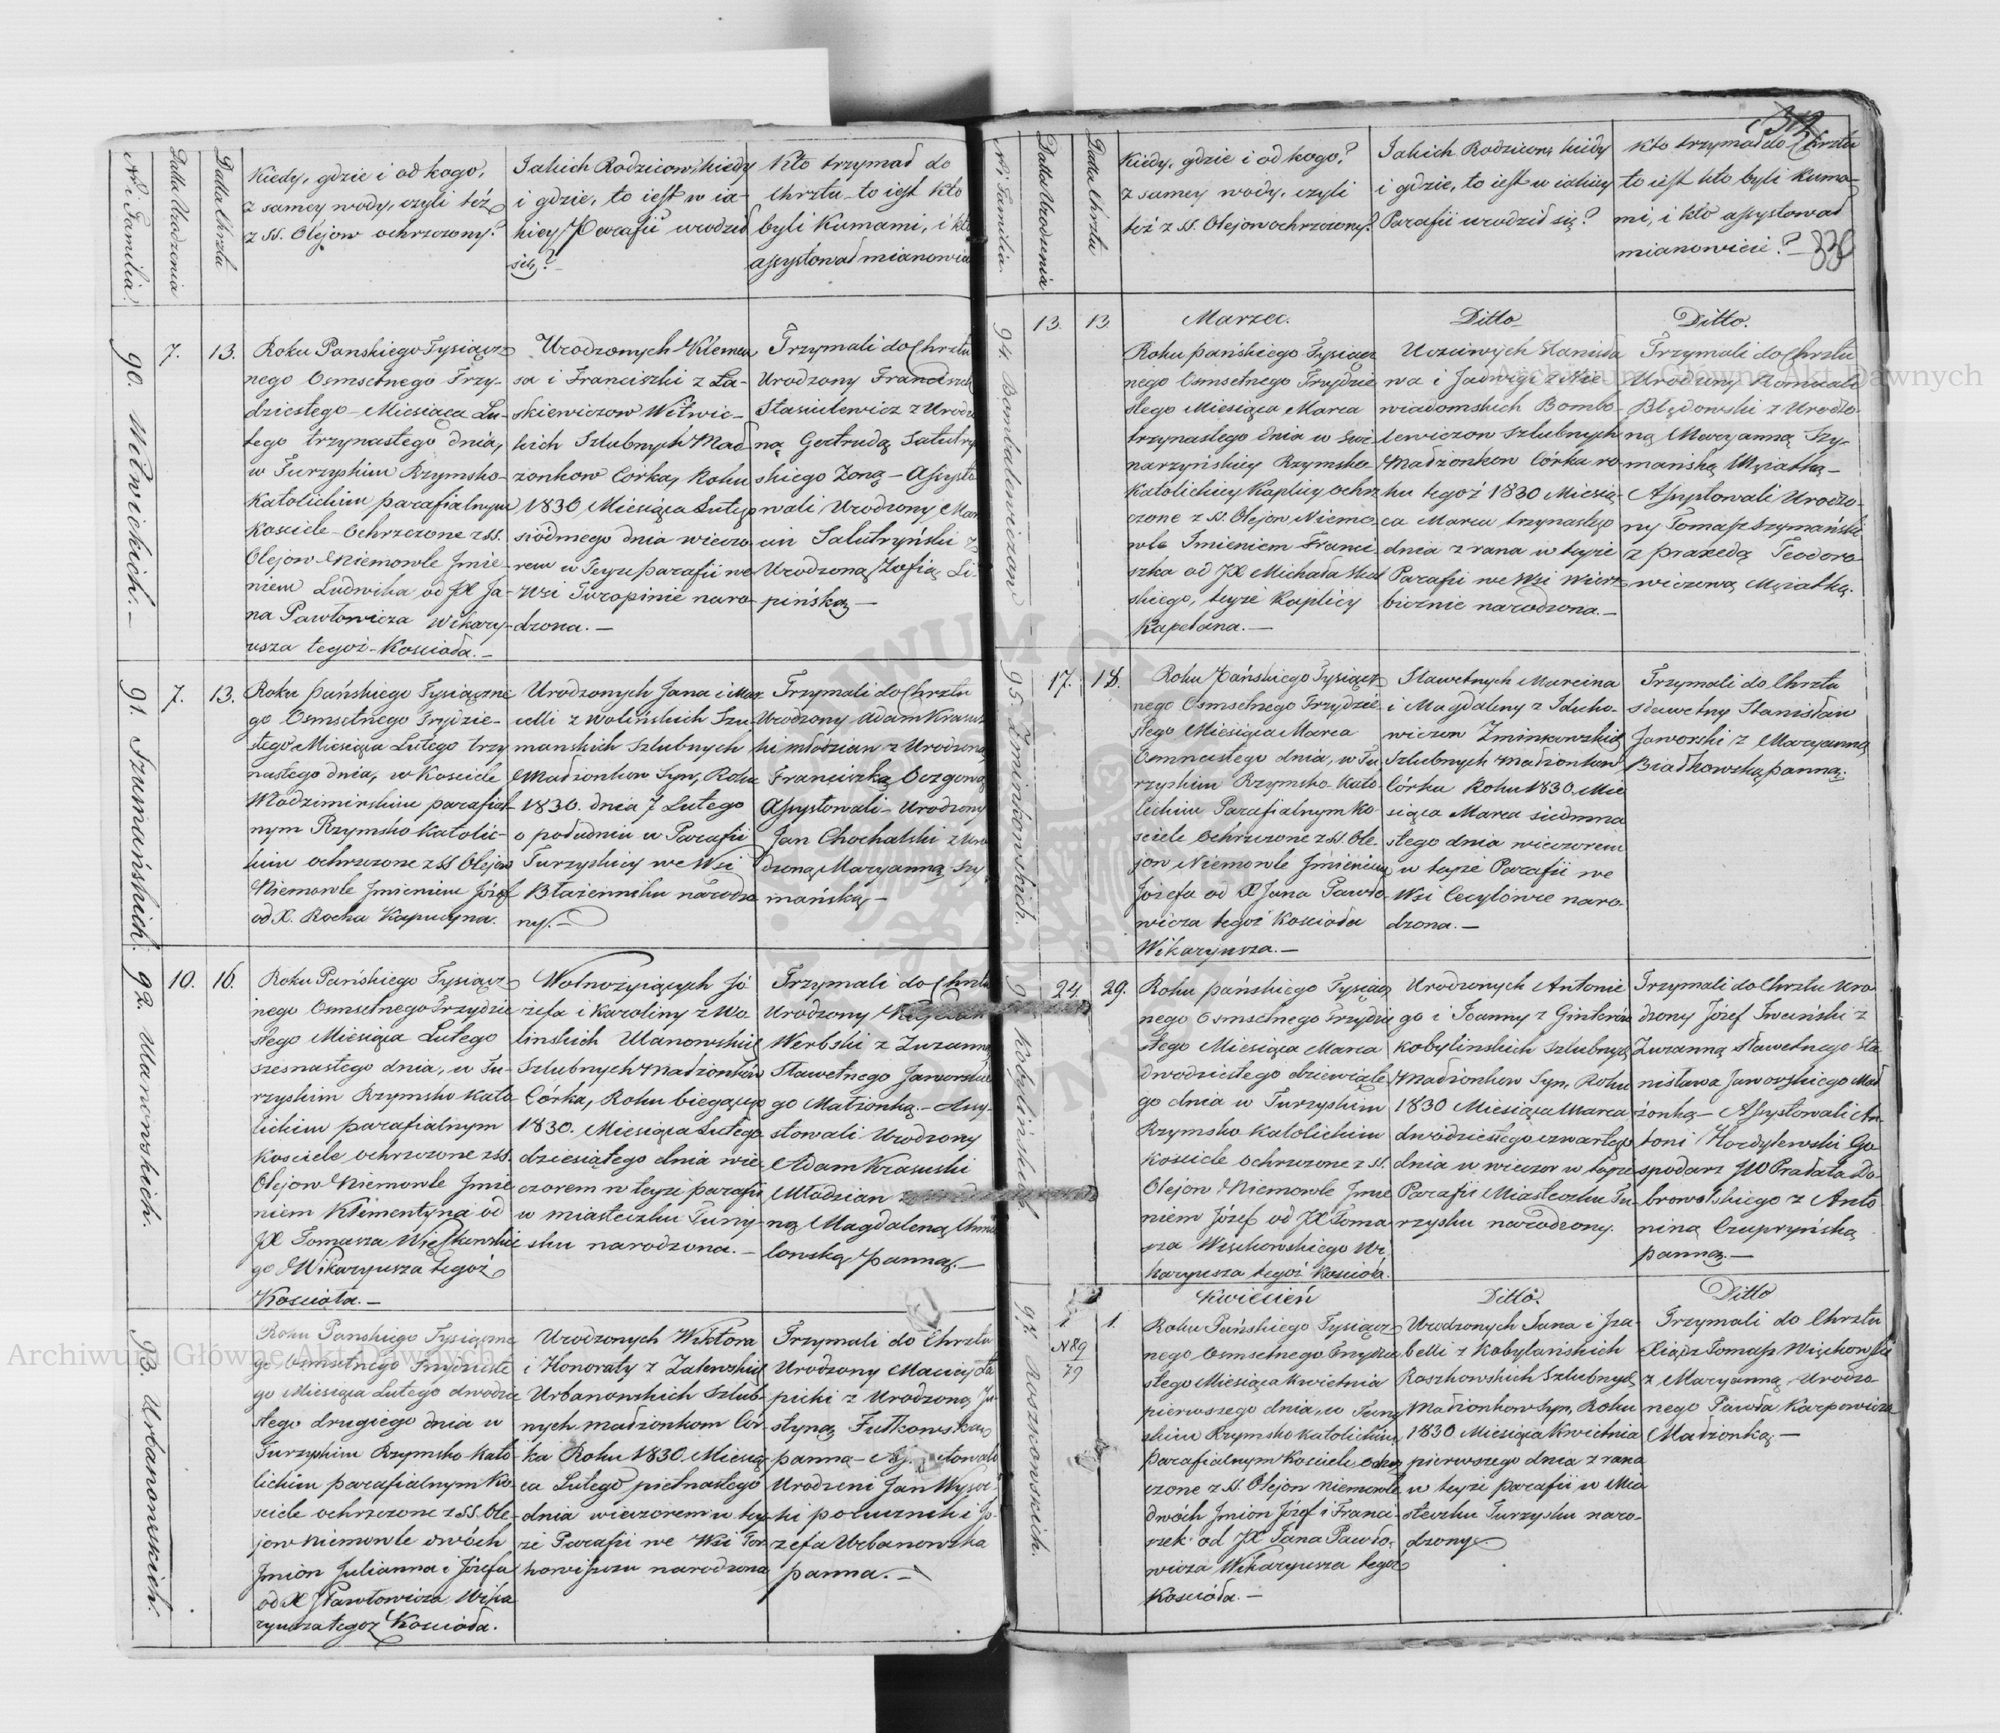 Nr i Familia.
Datta Urodzenia
Datta Chrztu
Kiedy, gdzie i od kogo,
z samey wody, czyli też
z SS. Olejow ochrzczony?
Jakich Rodzicow, kiedy
i gdzie, to iest w ia-
kiey Parafii urodził
się?
Kto trzymał do
Chrztu to iest kto
byli Kumami, i kto
assystował mianowicie
90. Witwickich.
7.
13.
Roku Panskiego Tysiącz
nego Osmsetnego Trzy-
dziestego Miesiąca Lu-
tego trzynastego dnia,
w Turzyskim Rzymsko-
Katolickim parafialnym
Kosciele Ochrzczone z SS.
Olejow Niemowle Imie-
niem Ludwika od JX Ja-
na Pawłowicza Wikary-
usza tegoż Koscioła.
Urodzonych Klemen
sa i Franciszki z La-
skiewiczow Witwic-
kich Szlubnych Mał
żonkow Corka, Roku
1830 Miesiąca Lutego
siódmego dnia wieczo
rem w Teyże parafii we
Wsi Turopinie naro-
dzona.
Trzymali do Chrztu
Urodzony Franciszek
Stasiulewicz z Urodzo
ną Gertrudą Salutry
skiego Zoną Assysto
wali Urodzony Mar
cin Salutryński z
Urodzoną Zofią Li-
pińską
91. Szumańskich.
7.
13.
Roku pańskiego Tysiączne
go Osmsetnego Trydzie-
stego Miesiąca Lutego trzy
nastego dnia, w Kosciele
Włodzimirskim parafial-
nym Rzymsko Katolic-
kim ochrzczone z SS Olejow
Niemowle Jmieniem Józef
od X. Rocha Kapucyna.
Urodzonych Jana i Mar
celli z Wolińskich Szu-
manskich Szlubnych
Małżonkow Syn, Roku
1830. dnia 7 Lutego
o południu w Parafii
Turzyskiey we Wsi
Błażenniku narodzo
ny.
Trzymali do Chrztu
Urodzony Adam Krasus
ki młodzian z Urodzoną
Franciszką Ocząową
Assystowali Urodzony
Jan Chochalski z Uro
dzoną Maryanną Szy
mańską
92. Ulanowskich.
10.
16.
Roku Pańskiego Tysiącz
nego Osmsetnego Trzydzie
stego Miesiąca Lutego
szesnastego dnia, w Tu-
rzyskim Rzymsko Kato
lickim parafialnym
Kosciele ochrzczone z SS.
Olejow Niemowle Jmie
niem Klementyna od
JX Tomasza Więckowskie
go Wikaryusza tegoż
Kosciola.
Wolnożyiących Jó
zefa i Karoliny z Wo
linskich Ulanowskich
Szlubnych Małżonków
Córka, Roku biegącego
1830. Miesiąca Lutego
dziesiątego dnia wie-
czorem w teyże parafii
w miasteczku Turzy-
sku narodzona.
Trzymali do Chrztu
Urodzony
Werbski z Zuzanną
Sławetnego Jaworskie
go Małżonką. Assy-
stowali Urodzony
Adam Krasuski
Młodzian
ną Magdaleną
panną.
93. Urbanowskich.
Roku Panskiego Tysiączne
go Osmsetnego Trzydzieste
go Miesiąca Lutego dwódzie
stego drugiego dnia w
Turzyskim Rzymsko Kato
lickim parafialnym Ko-
sciele ochrzczone z SS. Ole-
jow niemowle dwóch
Jmion Julianna i Józefa
od X Pawłowicza Wika
ryusza tegoż Kosciola.
Urodzonych Wiktora
i Honoraty z Zalewskich
Urbanowskich Szlub-
nych małżonkow Cór-
ka Roku 1830. Miesią
ca Lutego pietnastego
dnia wieczorem w tey
że Parafii we Wsi Tor
howiszczu narodzona
Trzymali do Chrztu
Urodzony Maciej
z Urodzoną Ju
styną Futkowską
panną
Urodzeni Jan Wysoc
ki porucznik i Jó-
zefa Urbanowska
panna.
312
Nr i Familia.
Datta Urodzenia
Datta Chrztu
Kiedy, gdzie i od kogo?
z samey wody, czyli
też z SS. Olejow ochrzczony?
Jakich Rodzicow, kiedy
i gdzie, to iest w iakiey
Parafii urodził się?
Kto trzymał do Chrztu
to iest kto byli Kuma-
mi, i kto assystował
mianowicie?
330
94. Bombalewiczow
13.
13.
Marzec.
Ditto
Ditto.
Roku pańskiego Tysiącz
nego Osmsetnego Trydzie
stego Miesiąca Marca
trzynastego dnia w Swi
narzyńskiey Rzymsko
Katolickiey Kaplicy ochrz
czone z SS. Olejow Niemo-
wle Jmieniem Franci
szka od JX Michała
skiego, teyże Kaplicy
Kapelana.
Uczciwych Stanisła
wa i Jadwigi z Nie
wiadomskich Bomba-
lewiczow Szlubnych
Małżonkow Córka ro
ku tegoż 1830 Miesią
ca Marca trzynastego
dnia z rana w teyże
Parafii we Wsi Wierz
bicznie narodzona.
Trzymali do Chrztu
Urodzony Romuald
Błędowski z Urodzo-
ną Maryanną Szy-
mańską Mężatką
Assystowali Urodzo-
ny Tomasz Szymański
z praxedą Teodoro-
wiczową Mężatką.
95. Zminkowskich.
17.
18.
Roku Pańskiego Tysiącz
nego Osmsetnego Trzydzie
stego Miesiąca Marca
Osmnastego dnia, w Tu
rzyskim Rzymsko Kato
lickim Parafialnym Ko
sciele Ochrzczone z SS. Ole-
jow Niemowle Jmieniem
Józefa od X Jana Pawło
wicza tegoż Kosciola
Wikaryusza.
Sławetnych Marcina
i Magdaleny z Zducho-
wiczow Zminkowskich
Szlubnych małżonkow
Córka Roku 1830. Mie
siąca Marca siedmna
stego dnia wieczorem
w teyże Parafii we
Wsi Cecylowce naro
dzona.
Trzymali do Chrztu
sławetny Stanisław
Jaworski z Maryanną
Białkowską panną.
Kobylińskich
24.
29.
Roku pańskiego Tysiącz
nego Osmsetnego Trzydzie
stego Miesiąca Marca
dwodziestego dziewiąte
go dnia w Turzyskim
Rzymsko Katolickim
Kosciele ochrzczone z SS.
Olejow Niemowle Jmie
niem Józef od JX Toma
sza Więckowskiego Wi
karyusza tegoż Kosciola.
Urodzonych Antonie
go i Joanny z Ginterów
Kobylinskich Szlubnych
Małżonkow Syn, Roku
1830 Miesiąca Marca
dwódziestego czwartego
dnia w wieczor w teyże
Parafii Miasteczku Tu-
rzysku narodzony.
Trzymali do Chrztu Uro
dzony Józef Iwciński z
Zuzanną Sławetnego Sta
nisława Jaworskiego Mał
żonką Assystowali An
toni Hordylewski Go
spodarz JW Prałata Do
browolskiego z Anto
niną Czupryńską
panną.
97. Roszkowskich.
1.
N 89
79
1.
Kwiecień
Ditto.
Ditto
Roku Pańskiego Tysiącz
nego Osmsetnego Trzydzie
stego Miesiąca Kwietnia
pierwszego dnia, w Turzy
skim Rzymsko katolickim
Parafialnym Kosciele ochrz
czone z SS. Olejow niemowle
dwóch Jmion Józef i Franci-
szek od JX Jana Pawło-
wicza Wikaryusza tegoż
Kosciola.
Urodzonych Jana i Iza-
belli z Kobylańskich
Roszkowskich Szlubnych
Małżonkow Syn, Roku
1830 Miesiąca Kwietnia
pierwszego dnia z rana
w teyże parafii w Mia
steczku Turzysku naro-
dzony
Trzymali do Chrztu
Xiądz Tomasz Więckowski
z Maryanną Urodzo
nego Pawła Karpowicza
Małżonką.
Archiwum Główne Akt Dawnych
Archiwum Główne Akt Dawnych